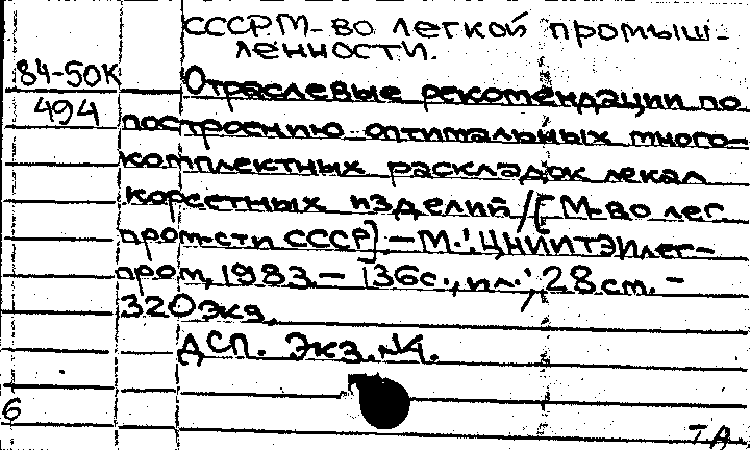 СССР. М-во легкой промыш-
ленности.
84-50К
494
Отраслевые рекомендации по
построению оптимальных много-
комплектных раскладок лекал
корсетных изделий /[М-во лег.
пром-сти СССР]. - М.: ЦНИИТЭИлег-
пром, 1983. - 136с., ил.; 28см. -
320экз.
ДСП. Экз. №4.
6
Т.А.